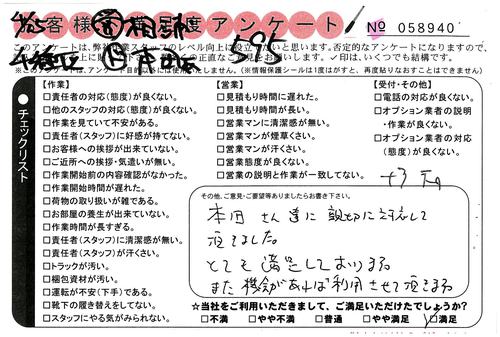 お客様満足度アンケート
№ 058940
このアンケートは、弊社作業スタッフのレベル向上に役立てたいと思います。否定的なアンケートになりますので、
✓印は、いくつでも結構です。
【作業】
□責任者の対応(態度)が良くない。
□他のスタッフの対応(態度)が良くない。
□作業を見ていて不安がある。
□責任者(スタッフ)に好感が持てない。
□お客様への挨拶が出来ていない。
□ご近所への挨拶・気遣いが無い。
□作業開始前の内容確認がなかった。
□作業開始時間が遅れた。
□荷物の取り扱いが雑である。
□お部屋の養生が出来ていない。
□作業時間が長すぎる。
□責任者(スタッフ)に清潔感が無い。
□責任者(スタッフ)が汗くさい。
□トラックが汚い。
□梱包資材が汚い。
□運転が不安(下手)である。
□靴下の履き替えをしてない。
□スタッフにやる気がみられない。
【営業】
□見積もり時間に遅れた。
□見積もり時間が長い。
□営業マンに清潔感が無い。
□営業マンが煙草くさい。
□営業マンが汗くさい。
□営業態度が良くない。
□営業の説明と作業が一致してない。
【受付・その他】
□電話の対応が良くない。
□オプション業者の説明
・作業が良くない。
□オプション業者の対応
(態度)が良くない。
チェックリスト
その他、ご意見・ご要望等ありましたらお書き下さい。
本田さん達に親切に対応して
頂てました。
とても満足しております
また機会があれば利用させて頂きます
☆当社をご利用いただきまして、ご満足いただけたでしょうか?
□不満 □やや不満 □普通 □やや満足 ☑満足